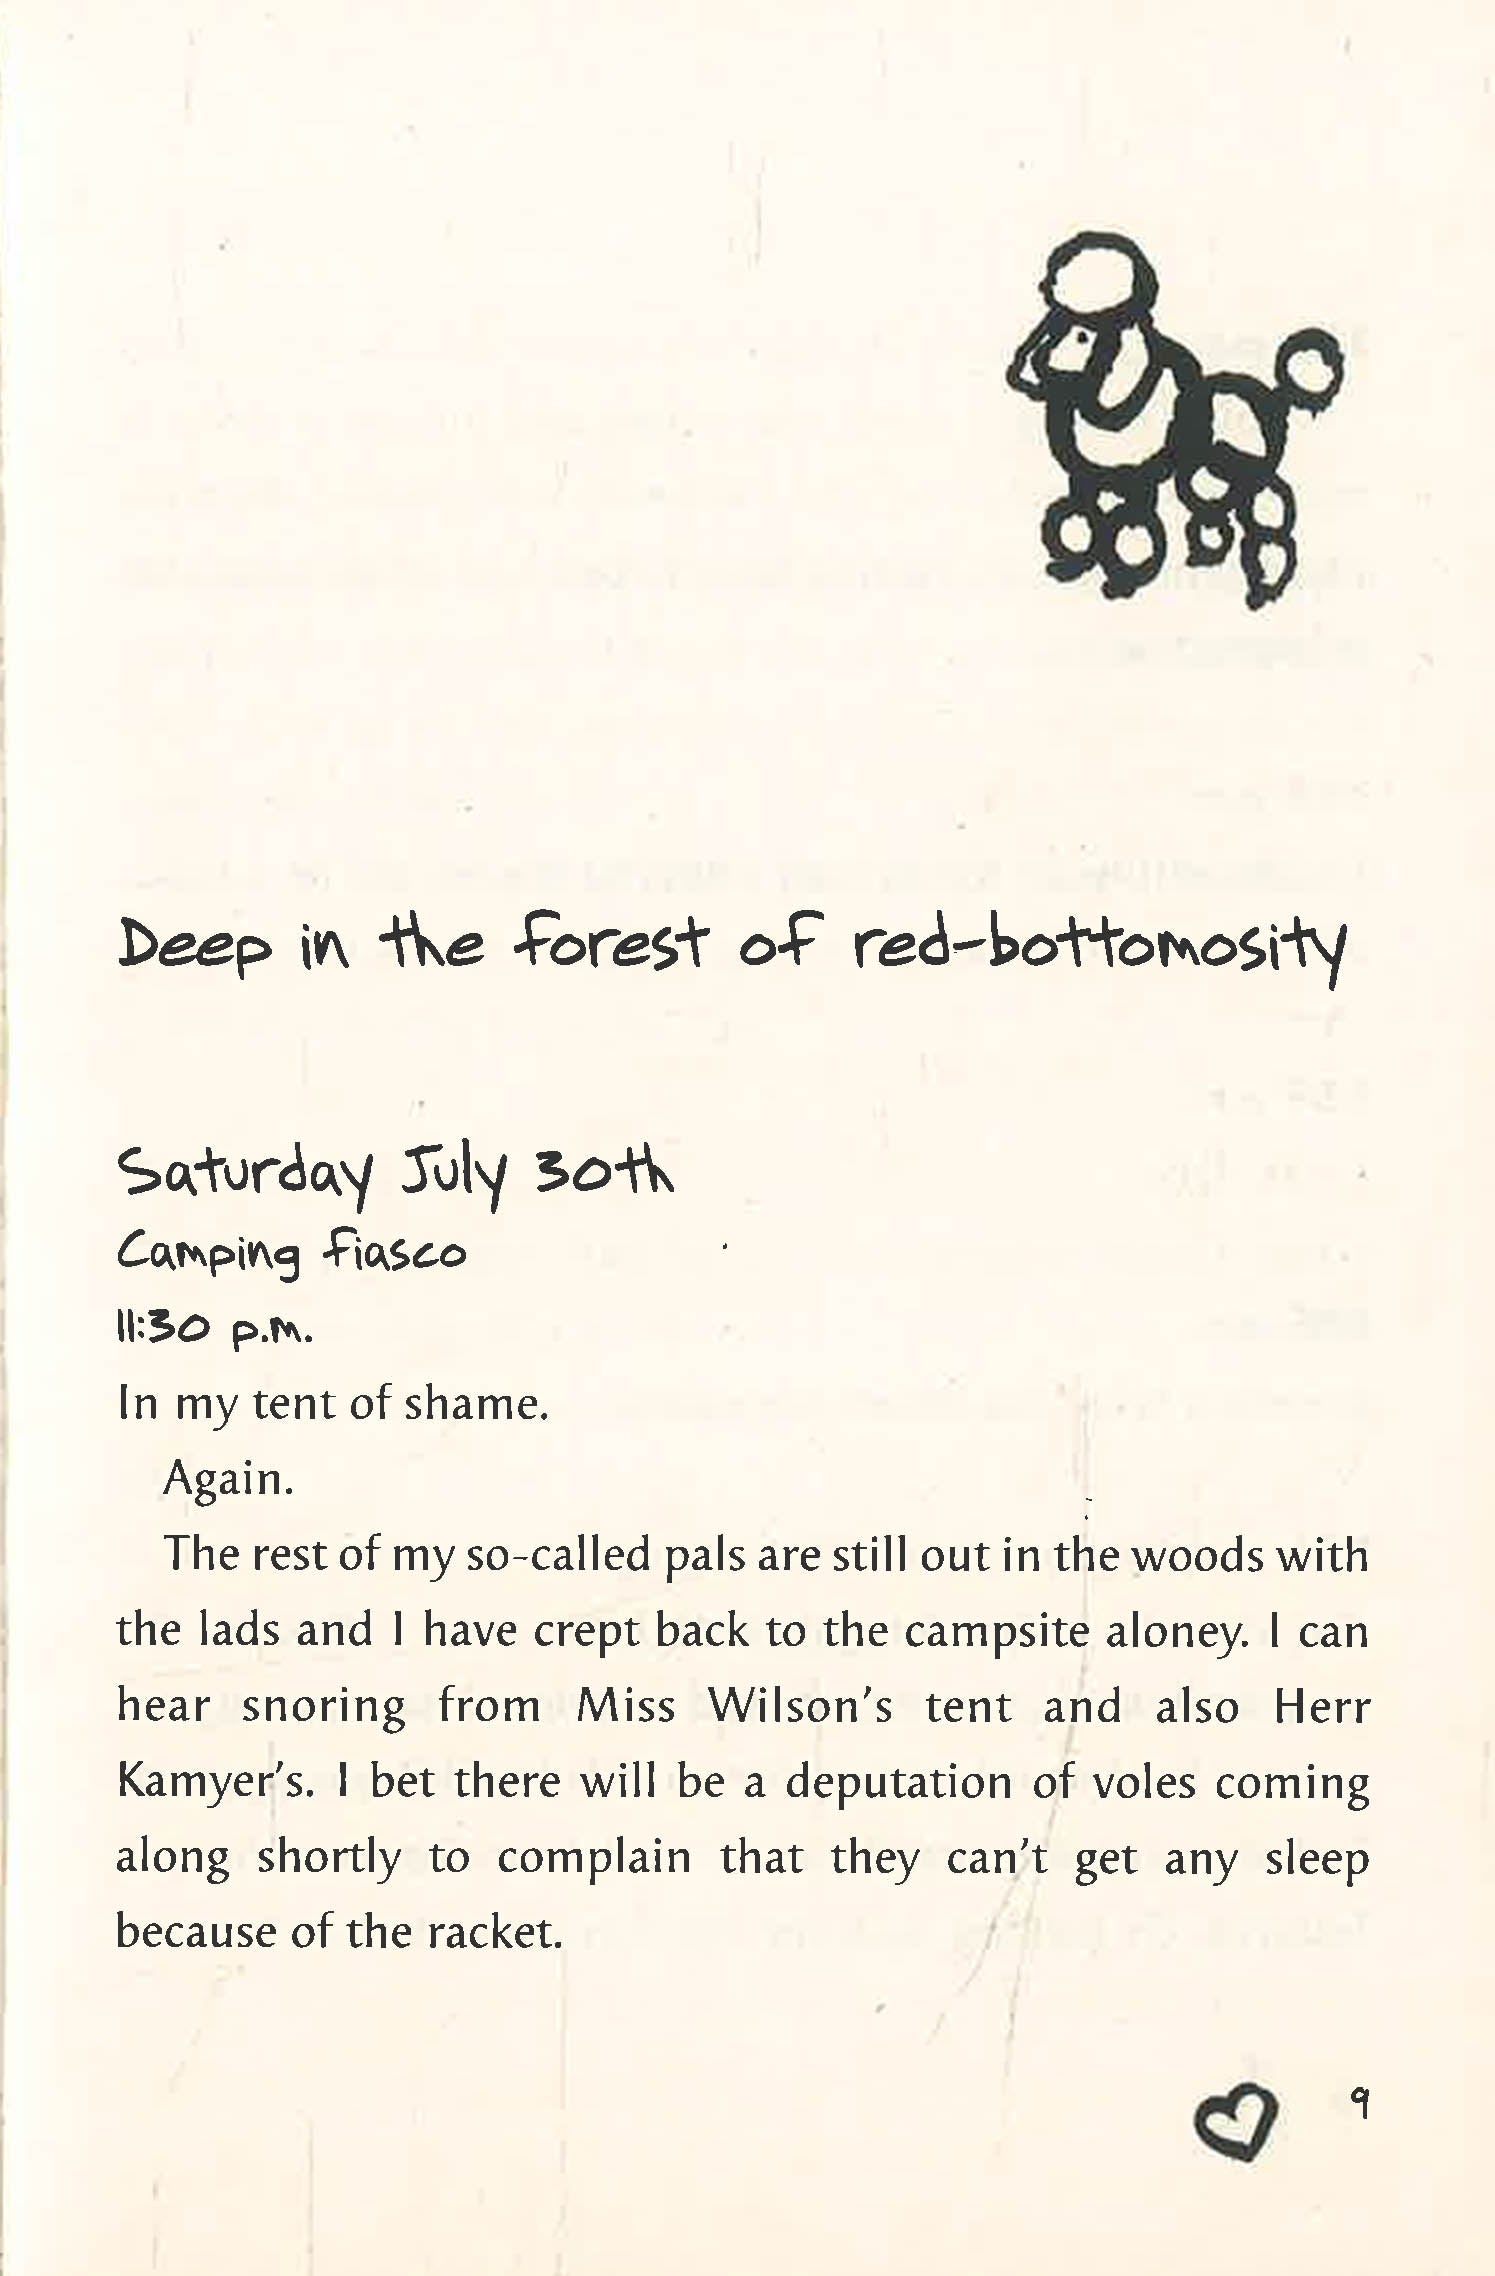 Deep in the forest of red-bottomosity
Saturday July 30th
Camping fiasco
11:30 p.m.
In my tent of shame.
Again.
The rest of my so-called pals are still out in the woods with
the lads and I have crept back to the campsite aloney. I can
hear snoring from Miss Wilson's tent and also Herr
Kamyer's. I bet there will be a deputation of voles coming
along shortly to complain that they can't get any sleep
because of the racket.
9